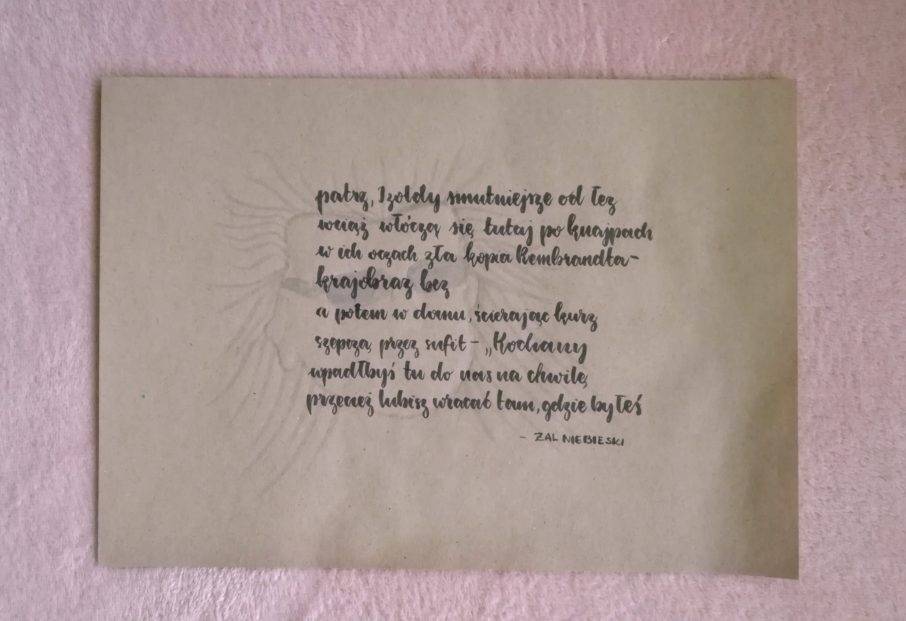 patrz, Izoldy smutniejsze od łez
wciąż włóczą się tutaj po knajpach
w ich oczach zła kopia Rembrandta-
krajobraz bez
a potem w domu, ścierając kurz
szepczą przez sufit - „Kochany
wpadłbyś tu do nas na chwilę,
przecież lubisz wracać tam, gdzie byłeś
- ZAL NIEBIESKI